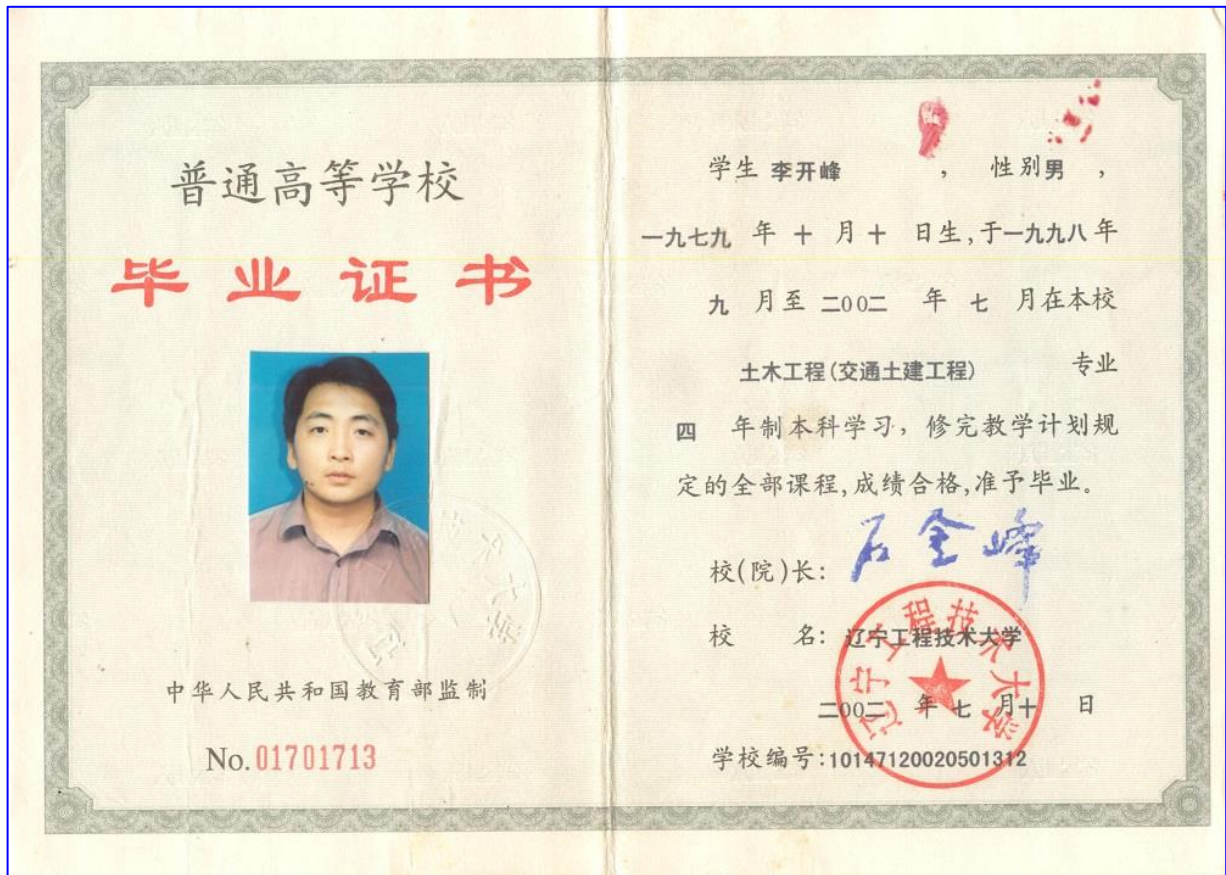 普通高等学校
毕业证书
中华人民共和国教育部监制
No.01701713
学生 李开峰 ， 性别男 ，
一九七九 年 十 月 十 日生,于一九九八年
九 月至 二00二 年 七 月在本校
土木工程(交通土建工程) 专业
四 年制本科学习，修完教学计划规
定的全部课程,成绩合格,准予毕业。
校(院)长: 石金峰
校 名: 辽宁工程技术大学
辽宁工程技术大学
二00二 年 七 月十 日
学校编号:10147120020501312